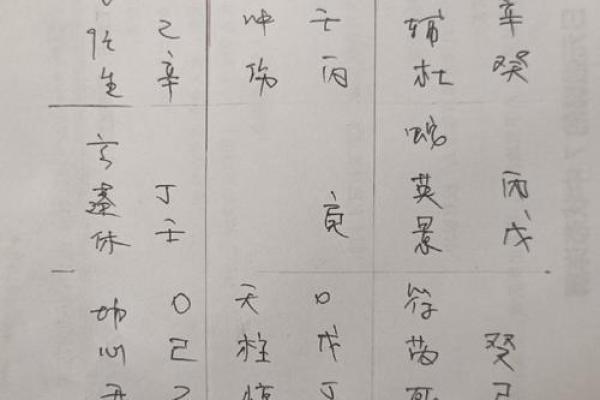 冲 壬 辅 辛
任 乙
生 辛 伤 丙 杜 癸
蛇
玄
蓬 丁 英 丙
休 壬 庚 景 戊
地 ○ 天 ○ 符
心 己 柱 戊 芮 癸